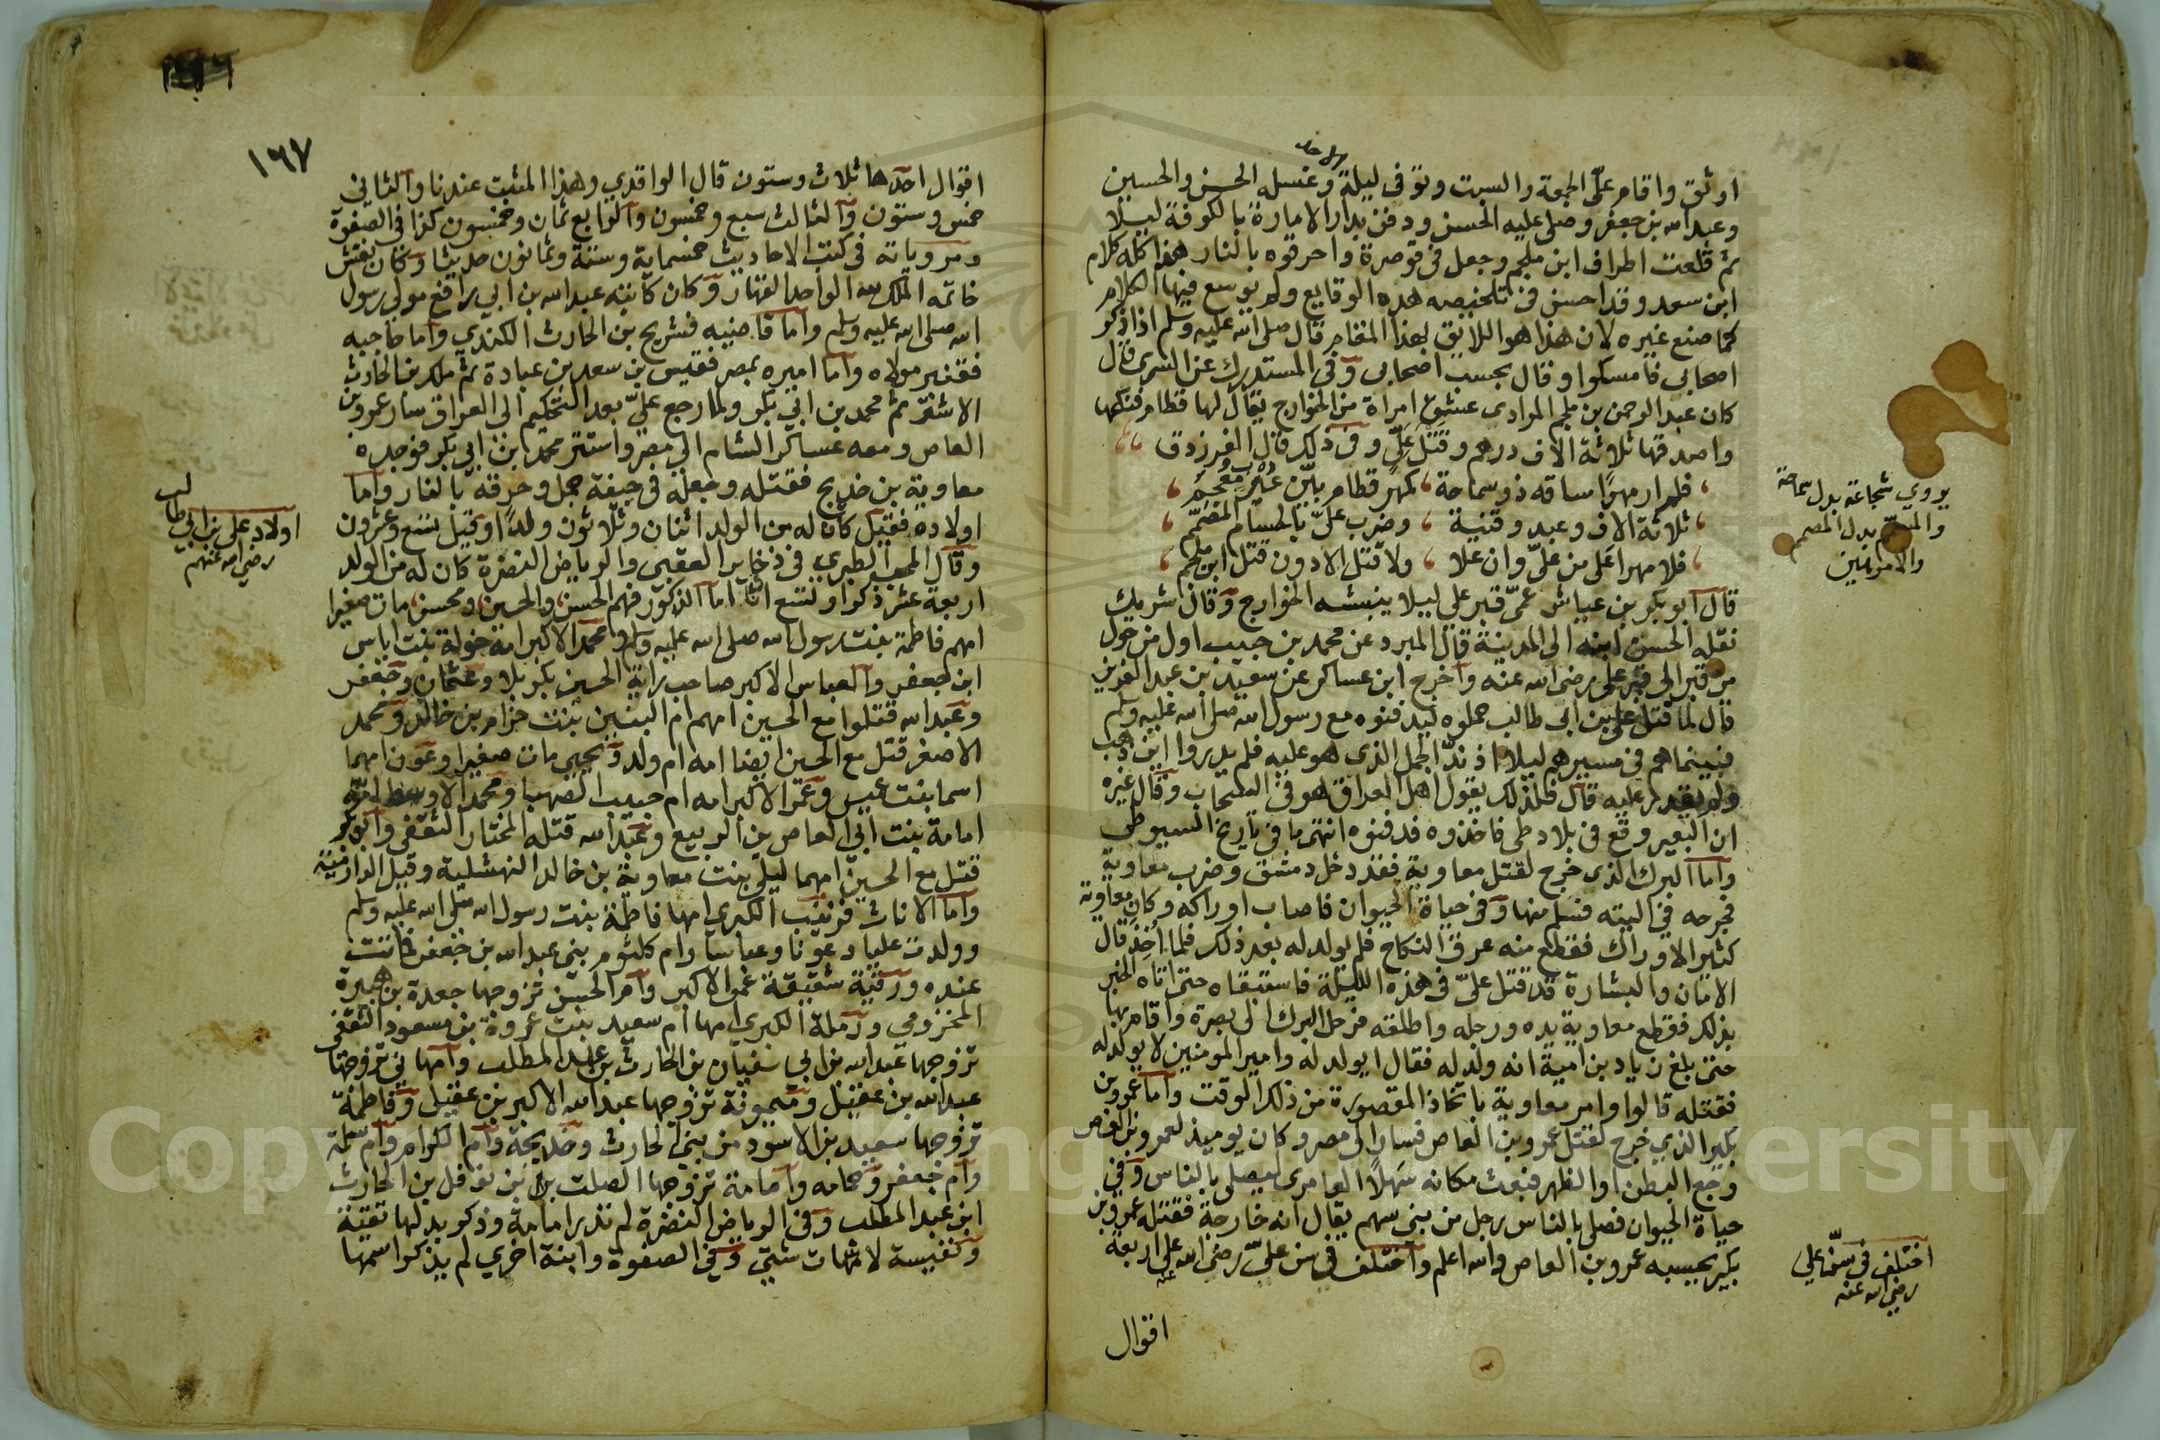 الاحد
اوثق واقام علي الجمعة والسبت وتوفي ليلة وغسله الحسن والحسين
وعبد الله بن جعفر وصلي عليه الحسن ودفن بدار الامارة بالكوفة ليلا
ثم قطعت اطراف ابن ملجم وجعل في قوصرة واحرقوه بالنار هذا كله كلام
ابن سعد وقد احسن في تلخيصه هذه الوقايع ولم يوسع فيها الكلام
كما صنع غيره لان هذا هو اللائق بهذا المقام قال صلى الله عليه وسلم اذا ذكر
اصحابي فامسكوا وقال بحسب اصحابي وفي المستدرك عن السري قال
كان عبد الرحمن بن ملجم المرادي عشق امراة من الخوارج يقال لها قطام فنكحها
واصدقها ثلاثة الاف درهم وقتل علي وفي ذلك قال الفرزدق
فلم ار مهرا ساقه ذو سماحة كمهر قطام بين غير معجم
ثلاثة الاف وعبد وقنية وضرب علي بالحسام المصمم
فلا مهر اعلى من علي وان علا ولا قتل الا دون قتل ابن ملجم
قال ابو بكر بن عياش عمي قبر علي ليلا ينبشه الخوارج وقال شريك
نقله الحسن ابنه الى المدينة قال المبرد عن محمد بن حبيب اول من حول
من قبر الى قبر علي رضى الله عنه واخرج ابن عساكر عن سعيد بن عبد العزيز
قال لما قتل علي بن ابي طالب حملوه ليدفنوه مع رسول الله صلى الله عليه وسلم
فبينما هم في مسيرهم ليلا اذ ند الجمل الذى هو عليه فلم يدروا اين ذهب
ولم يقدر عليه قال فلذلك يقول اهل العراق هو في السحاب وقال غيره
ان البعير وقع في بلاد طي فاخذوه فدفنوه انتهى ما في تاريخ السيوطي
واما البرك الذى خرج لقتل معاوية فقد دخل دمشق وضرب معاوية
فجرحه في اليته فسلم منها وفي حياة الحيوان فاصاب اوراكه وكان معاوية
كثير الاوراك فقطع منه عرق النكاح فلم يولد له بعد ذلك فلما اخذ قال
الامان والبشارة قد قتل علي في هذه الليلة فاستبقاه حتى اتاه الخبر
بذلك فقطع معاوية يده ورجله واطلقه فرحل البرك الى بصرة واقام بها
حتى بلغ زياد بن امية انه ولد له فقال ايولد له وامير المومنين لا يولد له
فقتله قالوا وامر معاوية باتخاذ المقصورة من ذلك الوقت واما عمرو بن
بكير الذي خرج لقتل عمرو بن العاص فسار الى مصر وكان يوميذ لعمرو بن العاص
وجع البطن او الظهر فبعث مكانه سهلا العامرى ليصلي بالناس وفي
حياة الحيوان فصلى بالناس رجل من بني سهم يقال انه خارجة فقتله عمرو بن
بكير يحسبه عمرو بن العاص والله اعلم واختلف في سن علي رضي الله عنه على اربعة
اقوال
يروي شجاعة بدل سماحة
بدل المصمم
اختلف في سن علي
رضي الله عنه
١٦٧
اقوال احدها ثلاث وستون قال الواقدي وهذا المثبت عندنا والثاني
خمس وستون والثالث سبع وخمسون والرابع ثمان وخمسون كذا في الصفوة
ومروياته في كتب الاحاديث خمسماية وستة وثمانون حديثا وكان نقش
خاتمه الملك لله الواحد القهار وكان كاتبه عبد الله بن ابي رافع مولى رسول
الله صلى الله عليه وسلم واما قاضيه فشريح بن الحارث الكندي واما حاجبه
فقنبر مولاه واما اميره بمصر فقيس بن سعد بن عبادة ثم ملك بن الحارث
الاشتر ثم محمد بن ابي بكر ولما رجع علي بعد التحكيم الى العراق سار عمرو بن
العاص ومعه عساكر الشام الى مصر واستتر محمد بن ابي بكر فوجده
معاوية بن خديج فقتله وجعله في جيفة جمل وحرقه بالنار واما
اولاده فقيل كان له من الولد اثنان وثلاثون ولدا وقيل تسع وعشرون
وقال المحب الطبري في ذخاير العقبى والرياض النضرة كان له من الولد
اربعة عشر ذكرا وتسع اناثا اما الذكور فهم الحسن والحسين ومحسن مات صغيرا
امهم فاطمة بنت رسول الله صلى الله عليه وسلم ومحمد الاكبر امه خولة بنت اياس
ابن جعفر والعباس الاكبر صاحب راية الحسين بكربلا وعثمان وجعفر
وعبد الله قتلوا مع الحسين امهم ام البنين بنت حزام بن خالد ومحمد
الاصغر قتل مع الحسين ايضا امه ام ولد ويحيي مات صغيرا وعون امهما
اسما بنت عميس وعمر الاكبر امه ام حبيب الصهبا ومحمد الاوسط امه
امامة بنت ابي العاص بن الربيع وعبد الله قتله المختار الثقفي وابو بكر
قتل مع الحسين امهما ليلى بنت معاوية بن خالد النهشلية وقيل الدارمية
واما الاناث فزينب الكبرى امها فاطمة بنت رسول الله صلى الله عليه وسلم
وولدت عليا وعونا وعباسا وام كلثوم بني عبد الله بن جعفر كانت
عنده ورقية شقيقة عمر الاكبر وام الحسن تزوجها جعدة بن هبيرة
المخزومي ورملة الكبرى امها ام سعيد بنت عروة بن مسعود الثقفي
تزوجها عبد الله بن ابي سفيان بن الحارث بن عبد المطلب وام هاني تزوجها
عبد الله بن عقيل وميمونة تزوجها عبد الله الاكبر بن عقيل وفاطمة
تزوجها سعيد بن الاسود من بني الحارث وخديجة وام الكرام وام سلمة
وام جعفر وجمانه وامامة تزوجها الصلت بن نوفل بن الحارث
ابن عبد المطلب وفي الرياض النضرة لم تذكر امامة وذكر بدلها تقية
ونفيسة لامهات شتي وفي الصفوة وابنة اخري لم يذكروا اسمها
اولاد علي بن ابي طالب
رضي الله عنهم